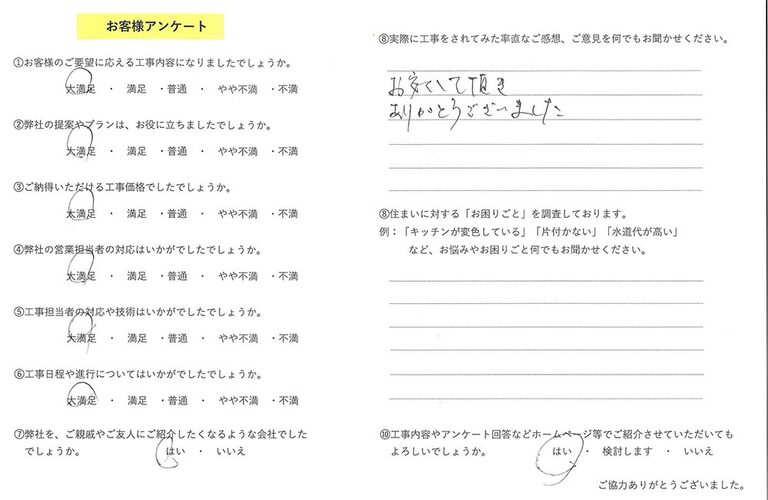 お客様アンケート
①お客様のご要望に応える工事内容になりましたでしょうか。
大満足 ・ 満足 ・普通 ・ やや不満 ・不満
②弊社の提案やプランは、お役に立ちましたでしょうか。
大満足 ・ 満足 ・普通 ・ やや不満 ・不満
③ご納得いただける工事価格でしたでしょうか。
大満足 ・ 満足 ・普通 ・ やや不満 ・不満
④弊社の営業担当者の対応はいかがでしたでしょうか。
大満足 ・ 満足 ・普通 ・ やや不満 ・不満
⑤工事担当者の対応や技術はいかがでしたでしょうか。
大満足 ・ 満足 ・普通 ・ やや不満 ・不満
⑥工事日程や進行についてはいかがでしたでしょうか。
大満足 ・ 満足 ・普通 ・ やや不満 ・不満
⑦弊社を、ご親戚やご友人にご紹介したくなるような会社でした
でしょうか。 はい ・ いいえ
⑧実際に工事をされてみた率直なご感想、ご意見を何でもお聞かせください。
お安くして頂き
ありがとうございました
⑧住まいに対する「お困りごと」を調査しております。
例：「キッチンが変色している」「片付かない」「水道代が高い」
など、お悩みやお困りごと何でもお聞かせください。
⑩工事内容やアンケート回答などホームページ等でご紹介させていただいても
よろしいでしょうか。 はい ・ 検討します ・ いいえ
ご協力ありがとうございました。